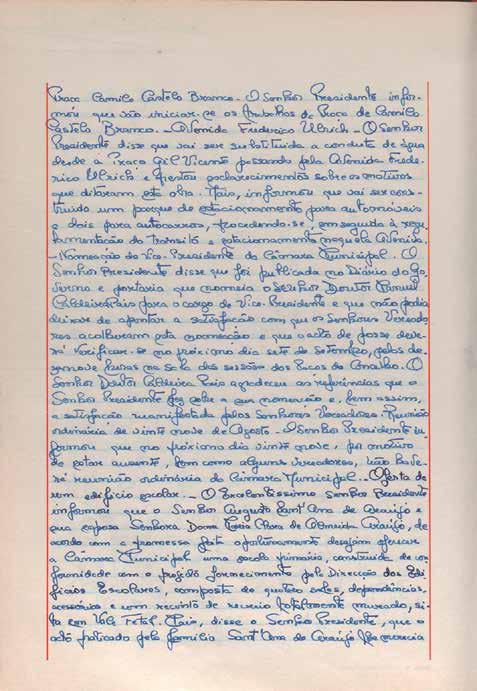 Praça Camilo Castelo Branco. O Senhor Presidente infor-
mou que vão iniciar-se os trabalhos da Praça de Camilo
Castelo Branco. — Avenida Frederico Ulrich — O Senhor
Presidente disse que vai ser substituida a conduta de água
desde a Praça Gil Vicente passando pela Avenida Frede-
rico Ulrich e prestou esclarecimentos sobre os motivos
que ditaram esta obra. Mais, informou que vai ser cons-
truido um parque de estacionamento para automóveis
e dois para autocarros, procedendo-se, em seguida à regu-
lamentação do trânsito e estacionamento naquela Avenida.
— Nomeação do Vice-Presidente da Câmara Municipal. O
Senhor Presidente disse que foi publicada no Diário do Go-
verno a portaria que nomeia o Senhor Doutor
Caldeira Pais para o cargo de Vice-Presidente e que não podia
deixar de apontar a satisfação com que os Senhores Vereado-
res acolheram esta nomeação e que o acto de posse deve-
rá verificar-se no próximo dia sete de Setembro, pelas de-
zanove horas na sala das sessões dos Paços do Concelho. O
Senhor Doutor Caldeira Pais agradeceu as referências que o
Senhor Presidente fez sobre a sua nomeação e, bem assim,
a satisfação manifestada pelos Senhores Vereadores. Reunião
ordinária de vinte nove de Agosto. — O Senhor Presidente in-
formou que no próximo dia vinte nove, por motivo
de estar ausente, bem como alguns vereadores, não have-
rá reunião ordinária da Câmara Municipal. — Oferta de
um edifício escolar. — O Excelentíssimo Senhor Presidente
informou que o Senhor Augusto Sant'Ana de Araújo e
sua esposa Senhora Dona Maria Clara de Almeida Araújo, de
acordo com a promessa feita oportunamente desejam oferecer
a Câmara Municipal uma escola primária, construida de con-
formidade com o projecto fornecimento pela Direcção dos Edi-
fícios Escolares, composta de quatro salas, dependências,
acessórios e com recinto de recreio totalmente murado, si-
ta em Vale Fetal. Mais, disse o Senhor Presidente, que o
acto praticado pela família Sant'Ana de Araújo lhe merecia